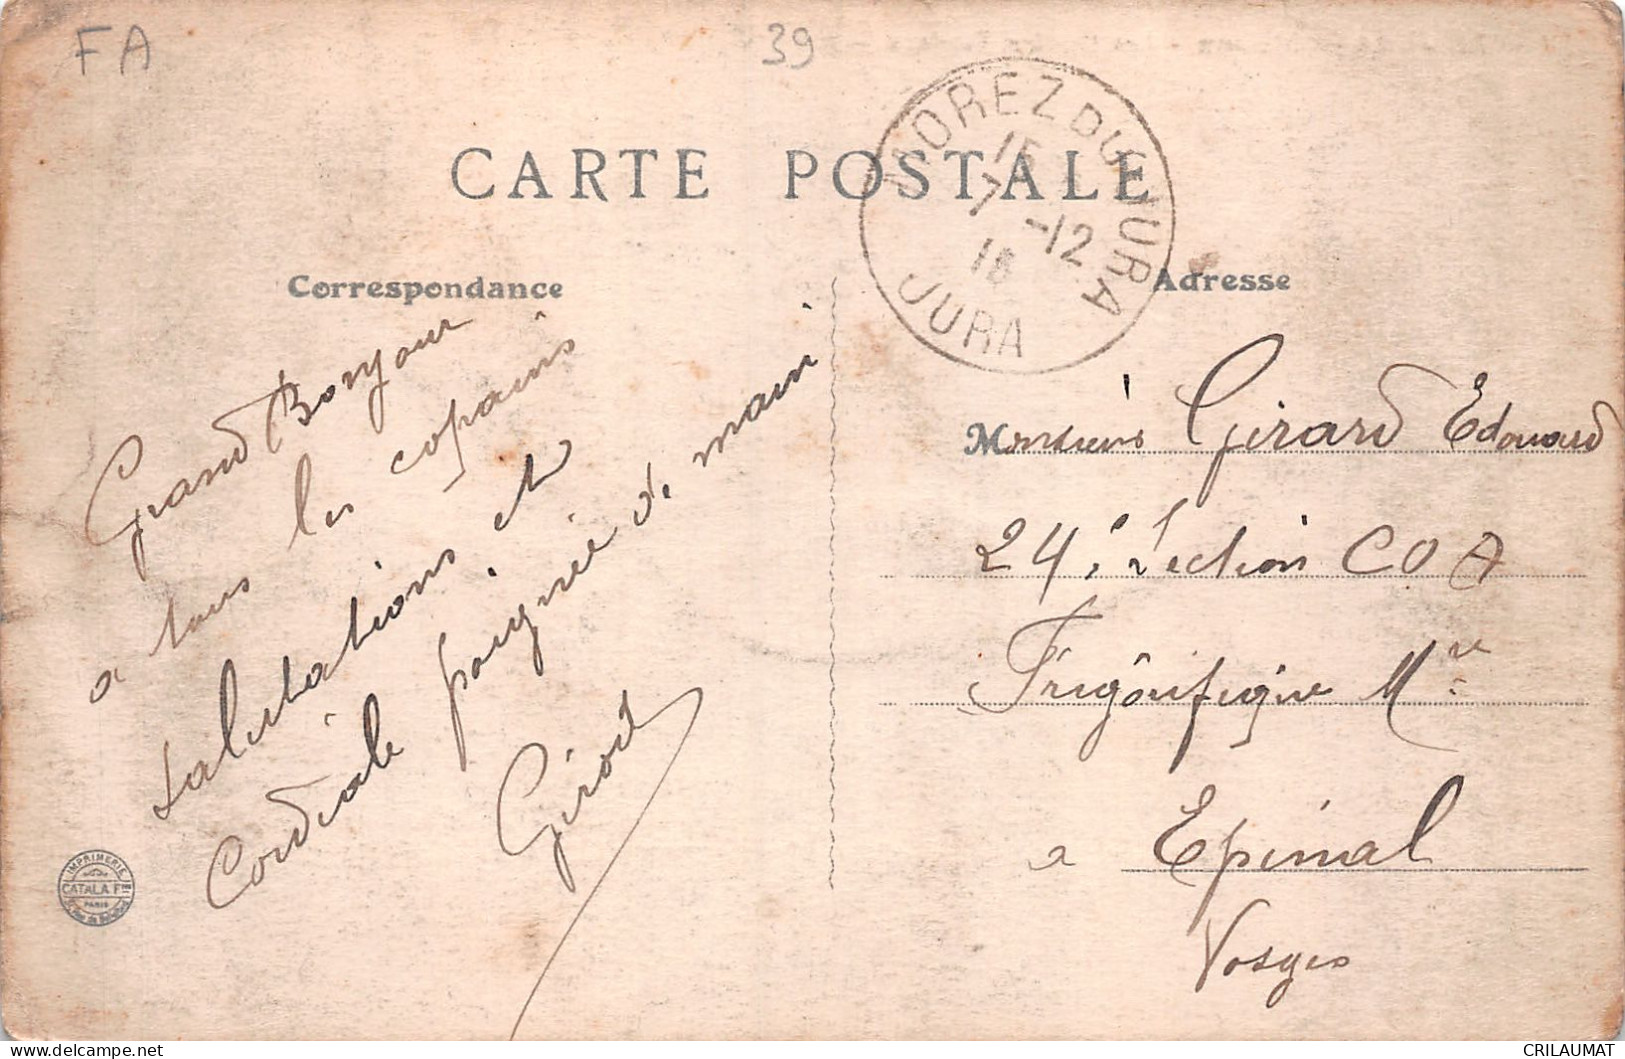 FA
39
CARTE POSTALE
MOREZ DU JURA
15
7 -12
18
JURA
Correspondance
Adresse
Grand Bonjour
a tous les copains
salutations et
Cordiale poignée de main
Girod
Monsieur Girard Edouard
24e Section COA
Frigôrifique Mre
a Epinal
Vosges
IMPRIMERIE
CATALA Fres
PARIS
CRILAUMAT